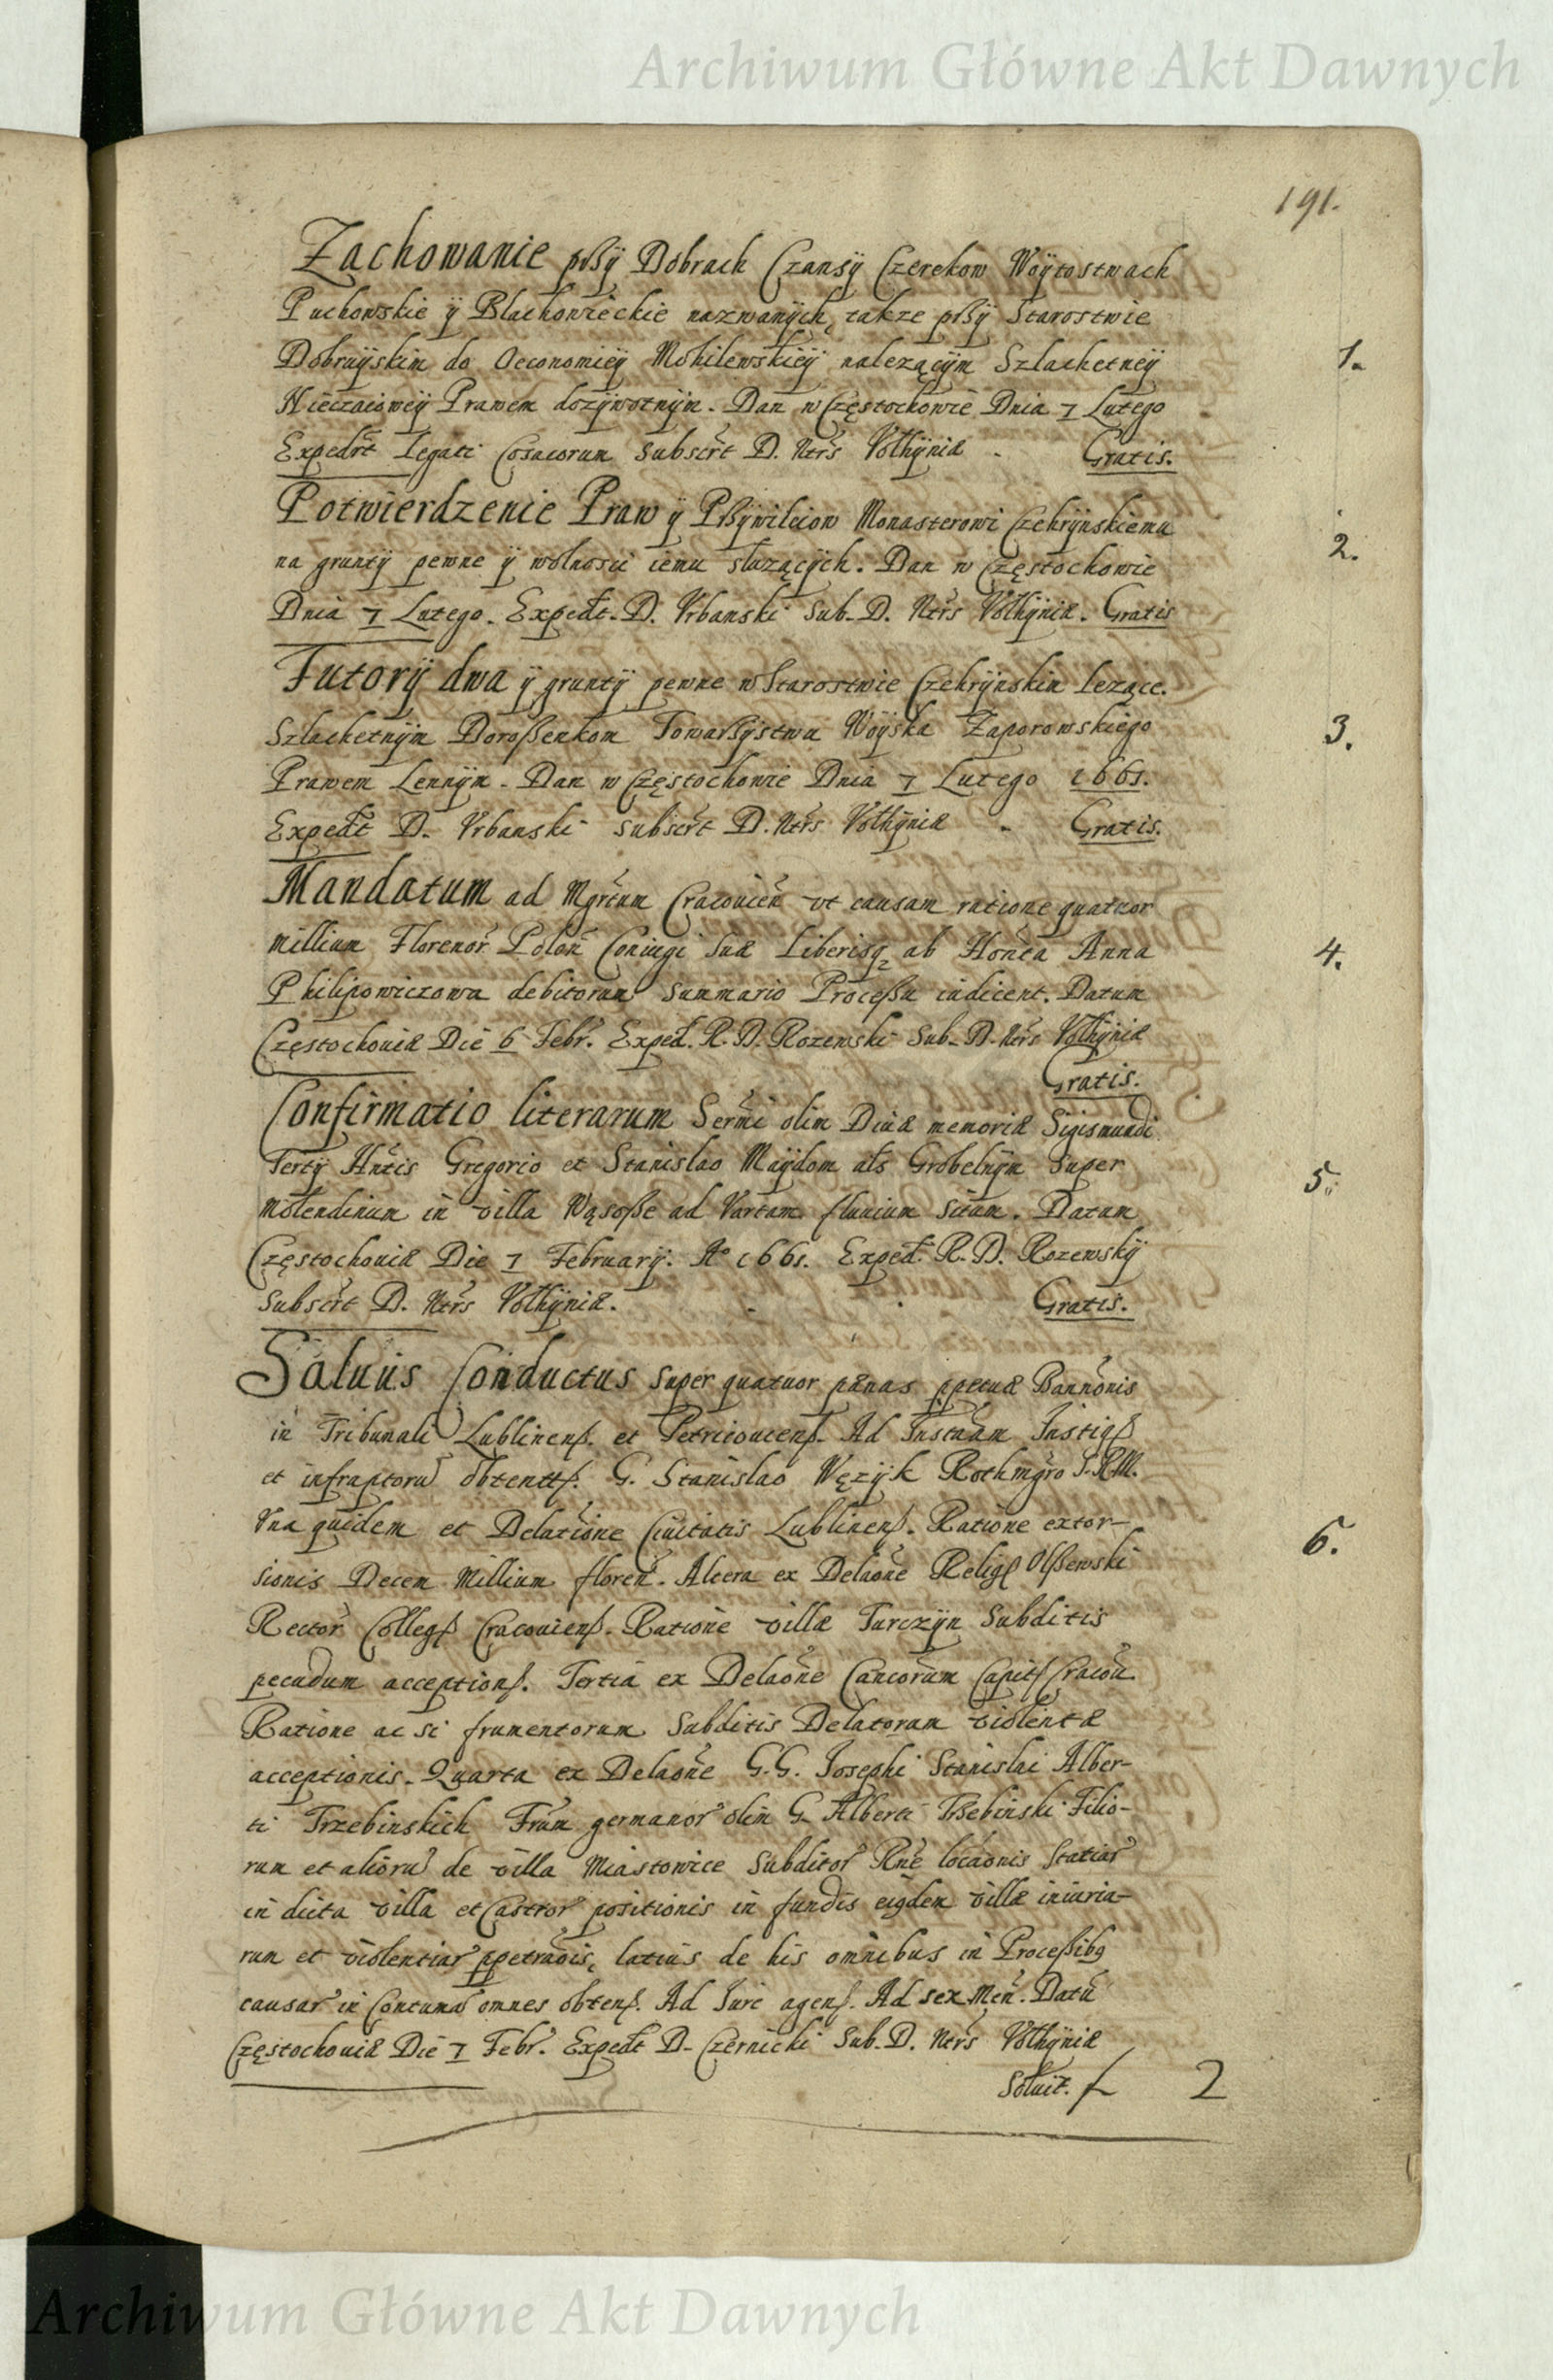 Archiwum Główne Akt Dawnych
191.
Zachowanie pßÿ Dobrach Czansÿ Czerekow Woÿtostwach
Puchowskie ÿ Blachowieckie nazwanÿch, takze pßÿ Starostwie
Dobruÿskim do Oeconomieÿ Mohilewskieÿ nalezącÿm Szlachetneÿ
1.
Nieczaioweÿ Prawem dozÿwotnÿm. Dan w Częstochowie Dnia 7 Lutego
Expedrt Legati Cosacorum Subscrt D. Ntrs Volhÿniæ - Gratis.
Potwierdzenie Praw ÿ Pßÿwileiow Monasterowi Czehrÿnskiemu
na gruntÿ pewne ÿ wolnosci iemu słuzącÿch. Dan w Częstochowie
2.
Dnia 7 Lutego. Expedt. D. Vrbanski Sub. D. Ntrs Volhÿniæ. Gratis
Futorÿ dwa ÿ gruntÿ pewne w Starostwie Czehrÿnskim lezące.
Szlachetnÿm Doroßenkom Towarßÿstwu Woÿska Zaporowskiego
3.
Prawem Lennÿm. Dan w Częstochowie Dnia 7 Lutego 1661.
Expedt D. Vrbanski subscrt D. Ntrs Volhÿniæ - Gratis.
Mandatum ad Mgrtum Cracouien vt causam ratione quatuor
millium Florenor Polon Coniugi suæ Liberisq ab Honta Anna
4.
Philipowiczowa debitorum summario Proceßu iudicent. Datum
Częstochouiæ Die 6 Febr. Exped. R. D. Rozewski Sub. D. Ntrs Volhÿniæ
Gratis.
Confirmatio literarum Sermi olim Diuæ memoriæ Sigismundi
Tertÿ Hntis Gregorio et Stanislao Maÿdom als Grobelnÿm super
5.
Molendinum in villa Wąsoße ad Vartam fluuium sitam. Datum
Częstochouiæ Die 7 Februarÿ. Ao 1661. Exped. R. D. Rozewskÿ
Subscrt D. Ntrs Volhÿniæ. Gratis.
Saluus Conductus super quatuor pænas ppetuæ Bannonis
in Tribunali Lublinenß. et Petricouienß. Ad Instaam Instigß
et infraptoru obtentß. G. Stanislao Wężÿk Rothmgro S.R.M.
Vna quidem et Delatione Ciuitatis Lublinenß. Ratione extor-
6.
sionis Decem Millium floren. Altera ex Delaone Religß Olßewski
Rector Collegß Cracouienß. Ratione villæ Turczÿn Subditis
pecudum acceptionß. Tertia ex Delaone Cancorum Capitß Cracou.
Ratione ac si frumentorum Subditis Delatorum violentæ
acceptionis. Quarta ex Delaone G.G. Josephi Stanislai Alber-
ti Trzebinskich Frum germanor olim G. Alberti Trßebinski Filio-
rum et alioru de villa Miastowice Subditor Rne locaonis Statiar
in dicta villa et Castror positionis in fundis eiqdem villæ iniuria-
rum et violentiar ppetraois, latius de his omnibus in Proceßibq
causar in Contuma omnes obtenß. Ad Jure agenß. Ad sex Men. Datu
Częstochouiæ Die 7 Febr. Expedt D. Czernicki Sub. D. Ntrs Volhÿniæ
Soluit. f 2
Archiwum Główne Akt Dawnych